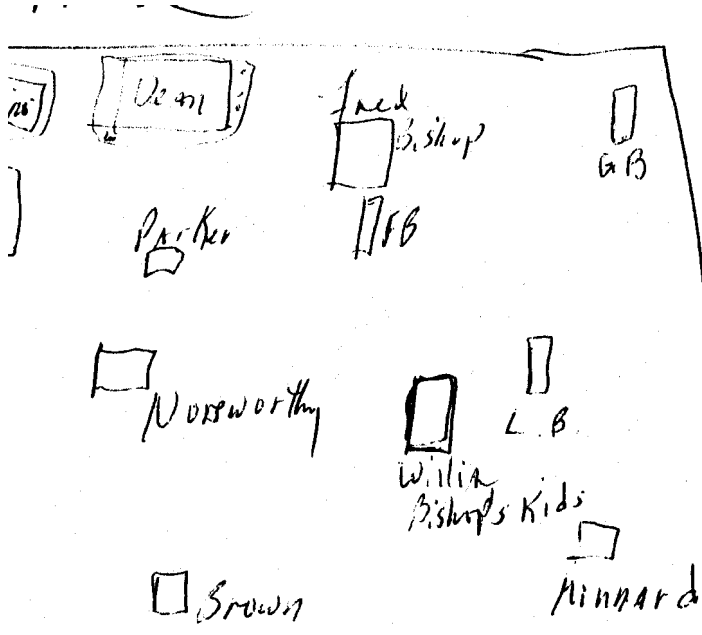 Dean
Fred
Bishop
GB
Parker
FB
Norsworthy
L. B.
Willie
Bishop's Kids
Brown